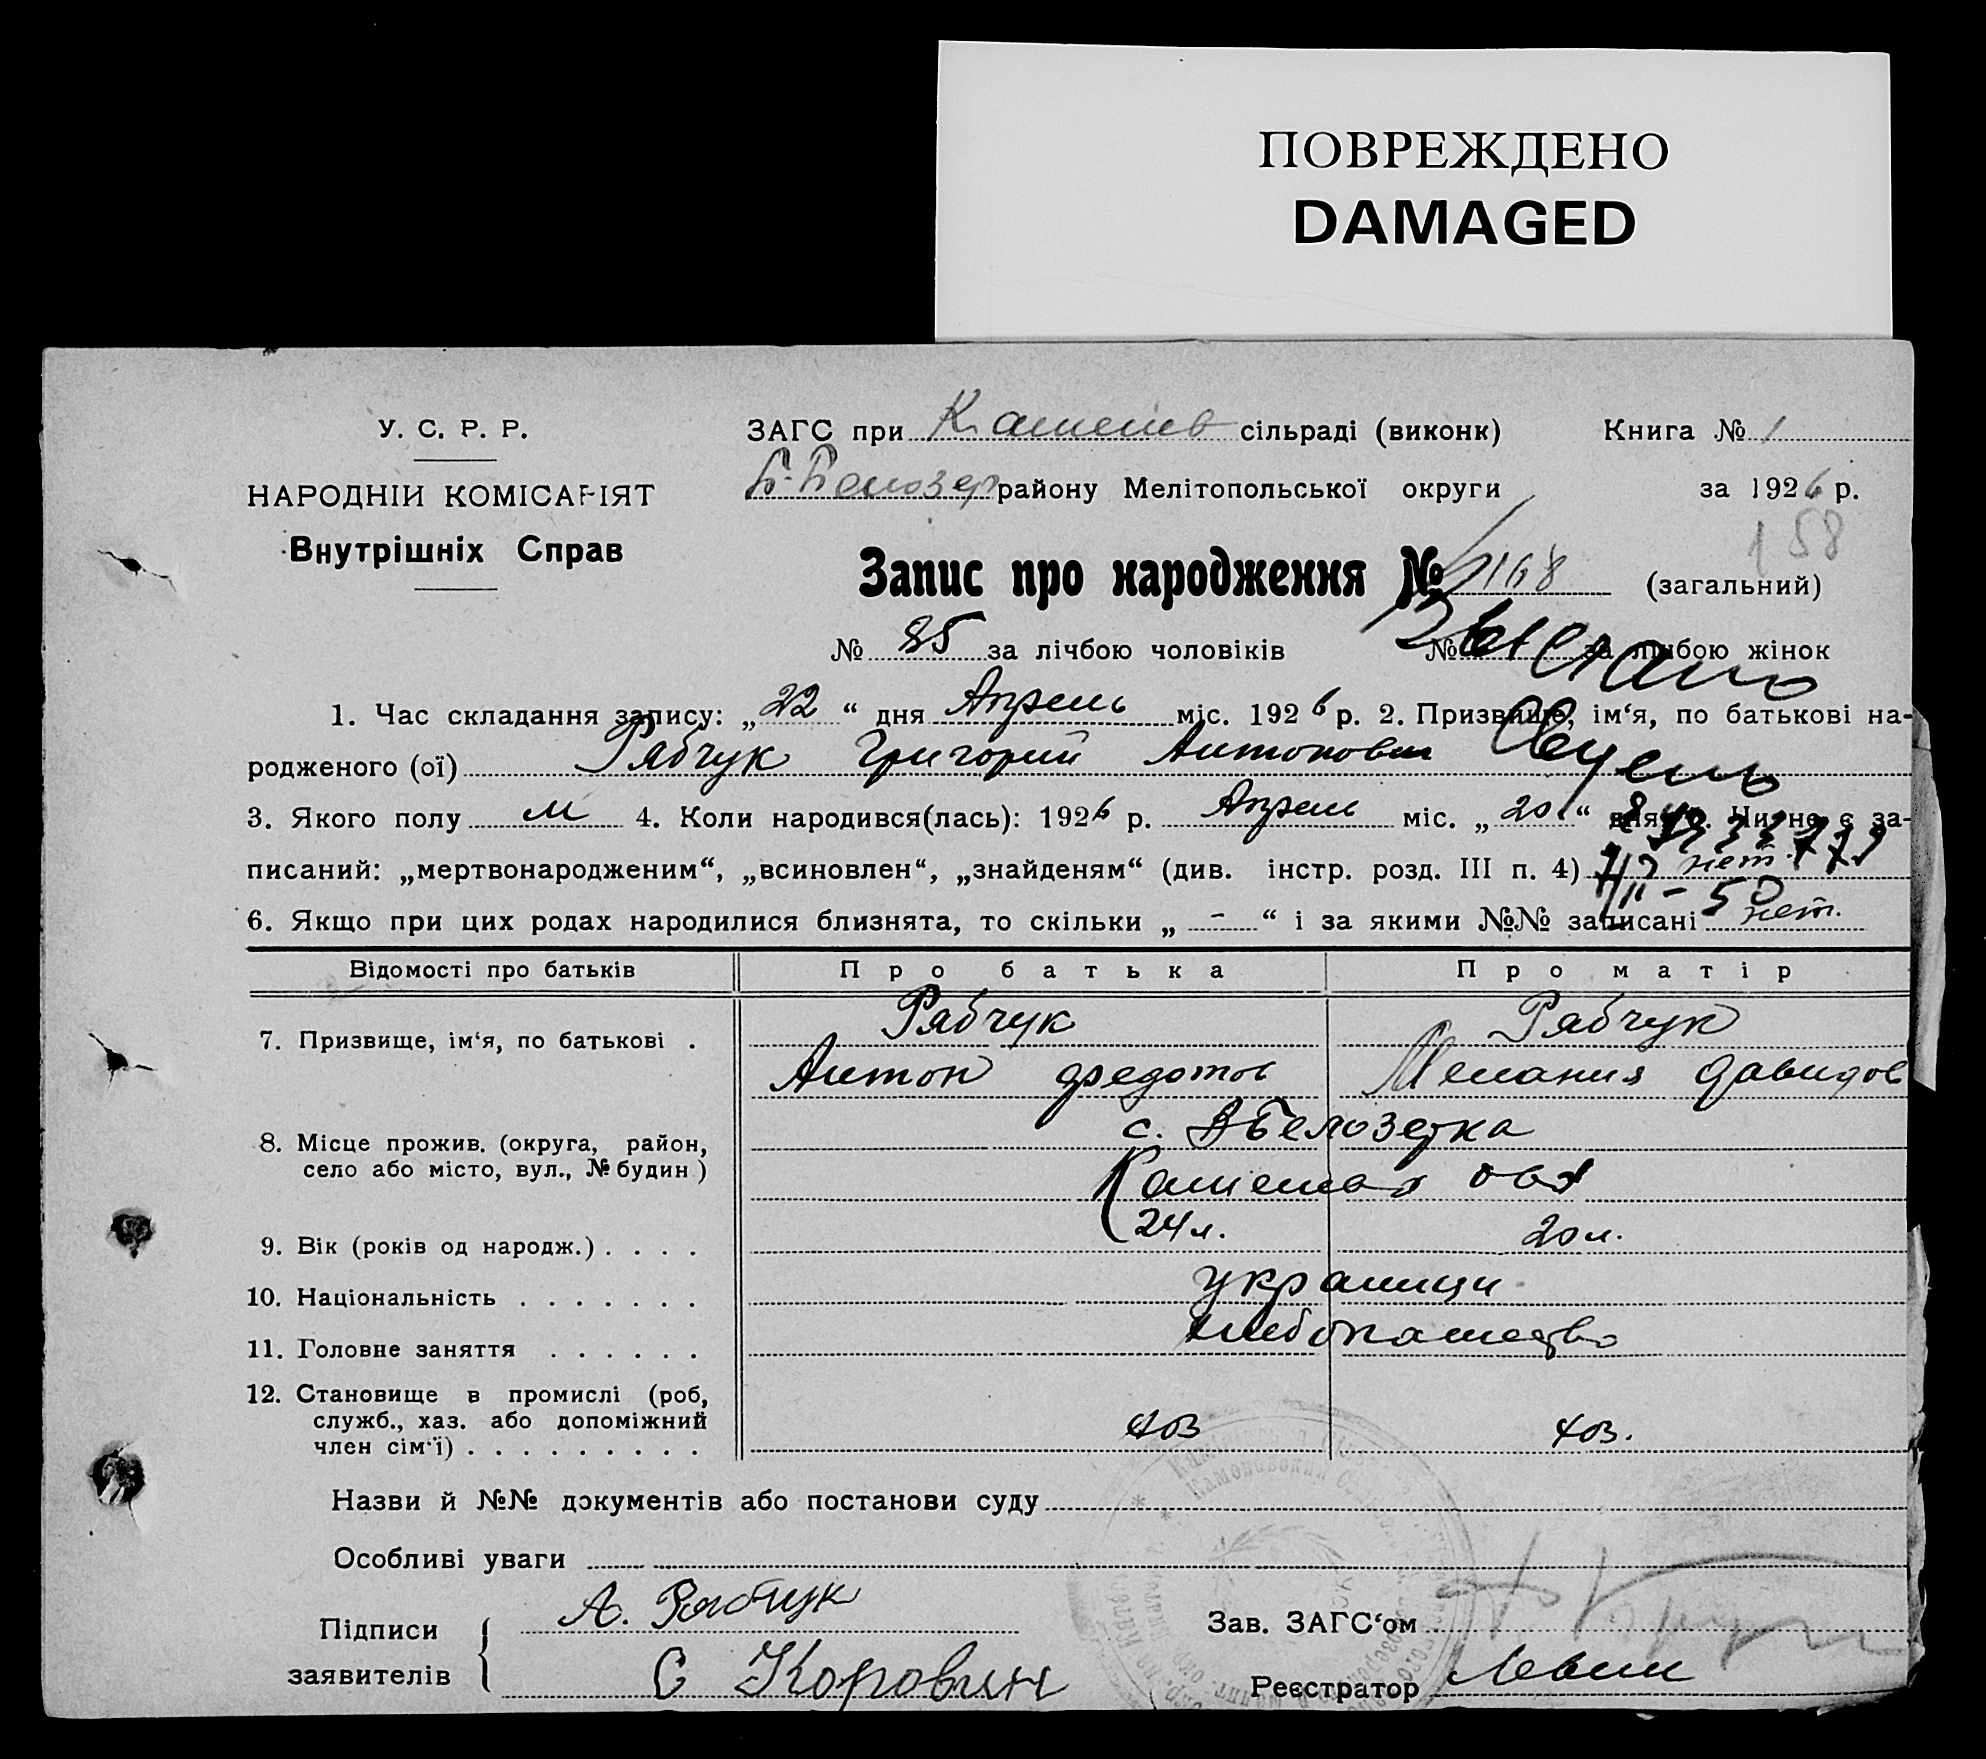 ПОВРЕЖДЕНО
DAMAGED
У. С. Р. Р.
ЗАГС при сільраді (виконк) Книга № 1
НАРОДНІЙ КОМІСАРІЯТ
Б-Белозер району Мелітопольської округи за 1926 р.
158
Внутрішніх Справ
Запис про народження № 168 (загальний)
№ 85 за лічбою чоловіків № за лічбою жінок
Выслано
1. Час складання запису: „22“ дня Апрель міс. 1926 р. 2. Призвище, ім‘я, по батькові на-
родженого (ої) Рябчук Григорий Антонович
3. Якого полу м 4. Коли народився(лась): 1926 р. Апрель міс. „20“ дня 5. Чи не є за-
писаний: „мертвонародженим“, „всиновлен“, „знайденям“ (див. інстр. розд. III п. 4) нет.
6. Якщо при цих родах народилися близнята, то скільки „ - “ і за якими №№ записані нет.
Відомості про батьків Про батька Про матір
7. Призвище, ім‘я, по батькові . Рябчук Рябчук
Антон Федотов Мелания Давидов
8. Місце прожив. (округа, район,
село або місто, вул., № будин) с. Белозерка
9. Вік (років од народж.) . . . . 24 л. 20 л.
10. Національність . . . . . . . украинци
11. Головне заняття . . . . . . хлебопашество
12. Становище в промислі (роб,
служб., хаз. або допоміжний
член сім‘ї) . . . . . . . . . хоз хоз.
Назви й №№ документів або постанови суду
Особливі уваги
Підписи А. Рябчук Зав. ЗАГС‘ом
заявителів С Коровин Реєстратор Левин